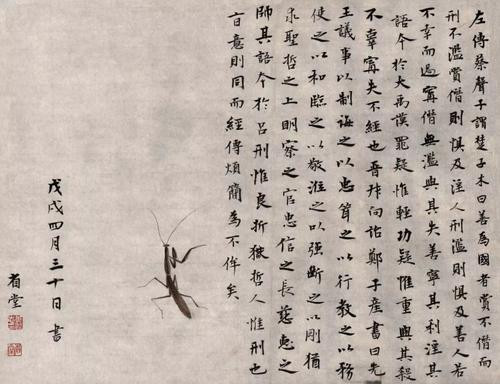 左傳蔡聲子謂楚子木曰善為國者賞不僭而
刑不濫賞僭則懼及淫人刑濫則懼及善人若
不幸而過寧僭無濫與其失善寧其利淫其
語本於大禹謨罪疑惟輕功疑惟重與其殺
不辜寧失不經也晉叔向詒鄭子產書曰先
王議事以制誨之以忠聳之以行教之以務
使之以和臨之以敬涖之以強斷之以剛猶
求聖哲之上明察之官忠信之長慈惠之
師其語本於呂刑惟良折獄哲人惟刑也
旨意則同而經傳煩簡為不侔矣
戊戌四月三十日書
省堂